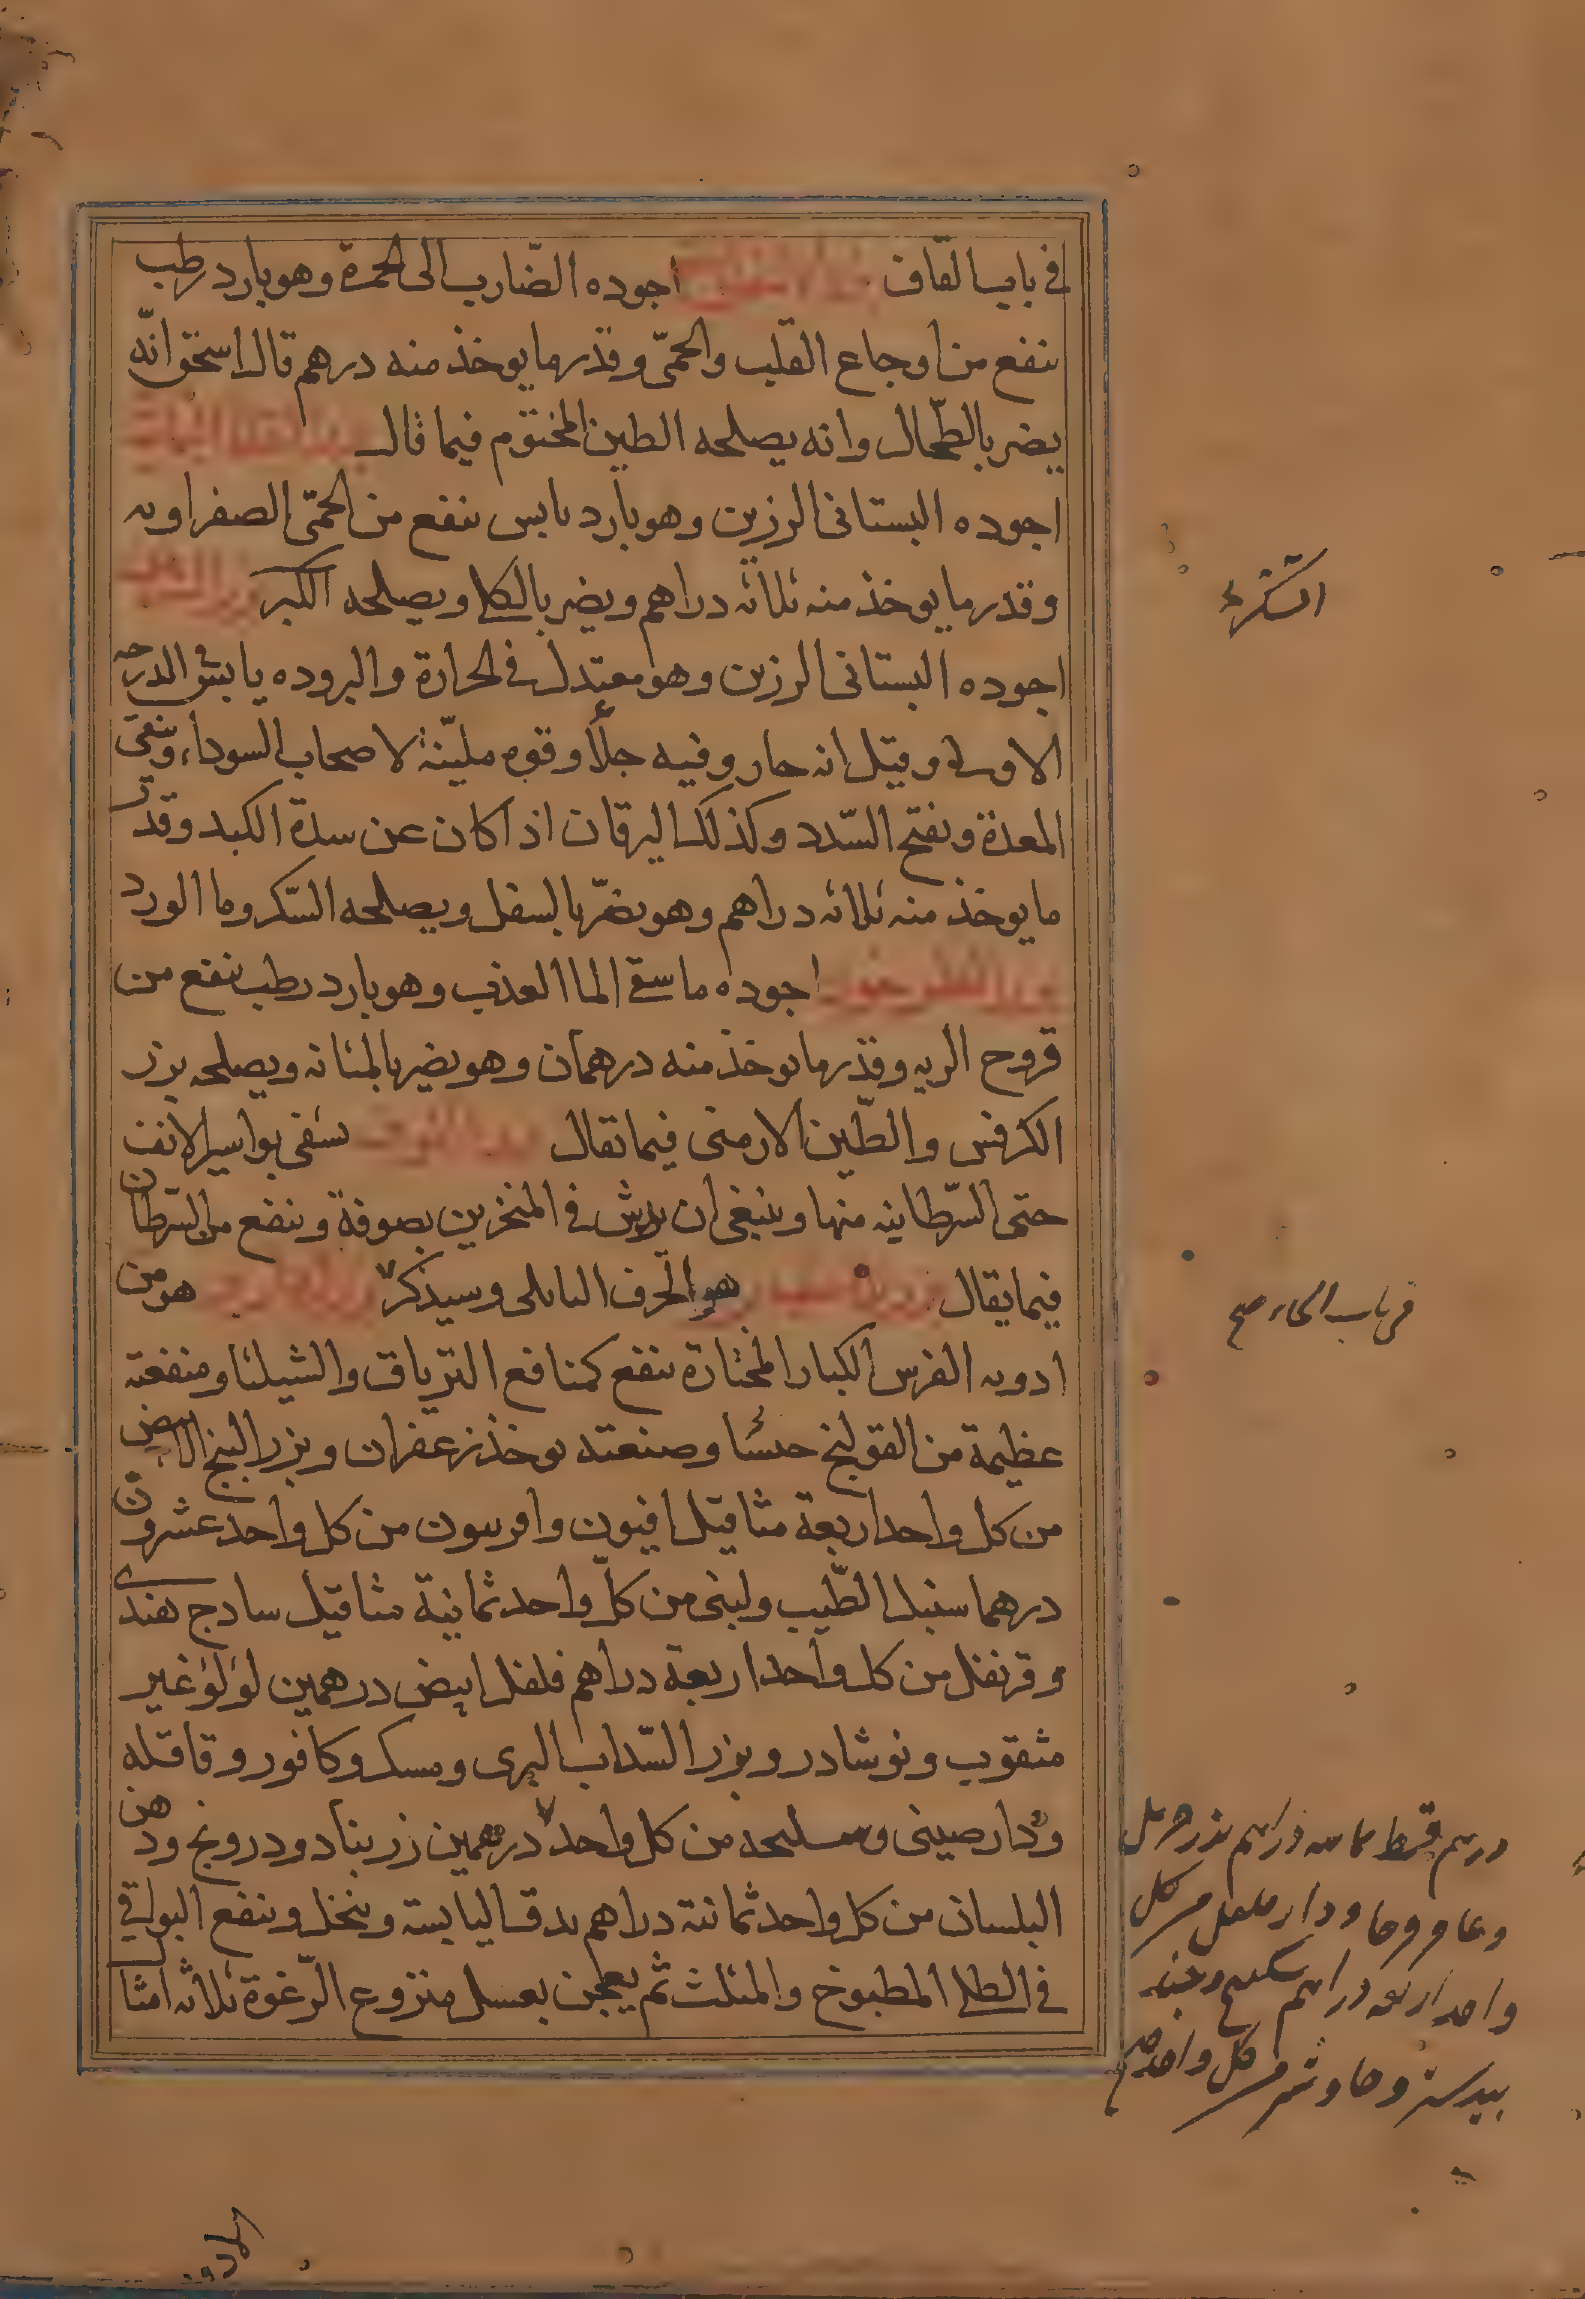 في باب القاف اجوده الضّارب الى الحمرة وهو بارد رطب
ينفع من اوجاع القلب والحمّى وقدر ما يوخذ منه درهم قال اسحق انّه
يضر بالطّحال وانه يصلحه الطين المختوم فيما قال
اجوده البستانى الرزين وهو بارد يابس ينفع من الحمّى الصفراويه
وقدر ما يوخذ منه ثلاثه دراهم ويضر بالكلا ويصلحه الكبر
اجوده البستانى الرزين وهو معتدل في الحرارة والبروده يابس في الدرجه
الاولى وقيل انه حار وفيه جلاء وقوه مليّنة لاصحاب السوداء وينقى
المعدة ويفتح السّدد وكذلك اليرقان اذا كان عن سدة الكبد وقدر
ما يوخذ منه ثلاثه دراهم وهو يضرّ بالسفل ويصلحه السّكر وما الورد
اجوده ما سقى الما العذب وهو بارد رطب ينفع من
قروح الريه وقدر ما يوخذ منه درهمان وهو يضر بالمثانه ويصلحه بزر
الكرفس والطّين الارمنى فيما يقال يشفى بواسير الانف
حتى السّرطانيه منها وينبغى ان يدس في المنخرين بصوفة وينفع من السّرطان
فيما يقال هو الحرف البابلى وسيذكر هو من
ادويه الفرس الكبار المختارة ينفع كمنافع الترياق والشيلثا ومنفعته
عظيمة من القولنج وصنعته يوخذ زعفران وبزر البنج الابيض
من كل واحد اربعة مثاقيل افيون وافربيون من كل واحد عشرون
درهما سنبل الطّيب ولبنى من كلّ واحد ثمانية مثاقيل سادج هندى
وقرنفل من كل واحد اربعة دراهم فلفل ابيض درهمين لؤلؤ غير
مثقوب ونوشادر وبزر السّداب البرى ومسك وكافور وقاقله
ودارصينى وسليحه من كل واحد درهمين زرنباد ودرونج ودهن
البلسان من كل واحد ثمانية دراهم يدق اليابسة وينخل وينقع البواقى
في الطلا المطبوخ والمثلث ثم يعجن بعسل منزوع الرّغوة ثلاثه امثا
السّكر
فى باب الحاء صح
درهم قسط دراهم بذر حرمل
ودار فلفل من كل
واحد اربعه دراهم سكبينج وجند
بيدستر من كل واحد